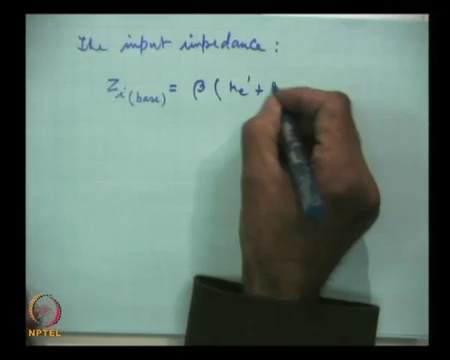 The input impedance :
Z i (base) = β ( re' +
NPTEL